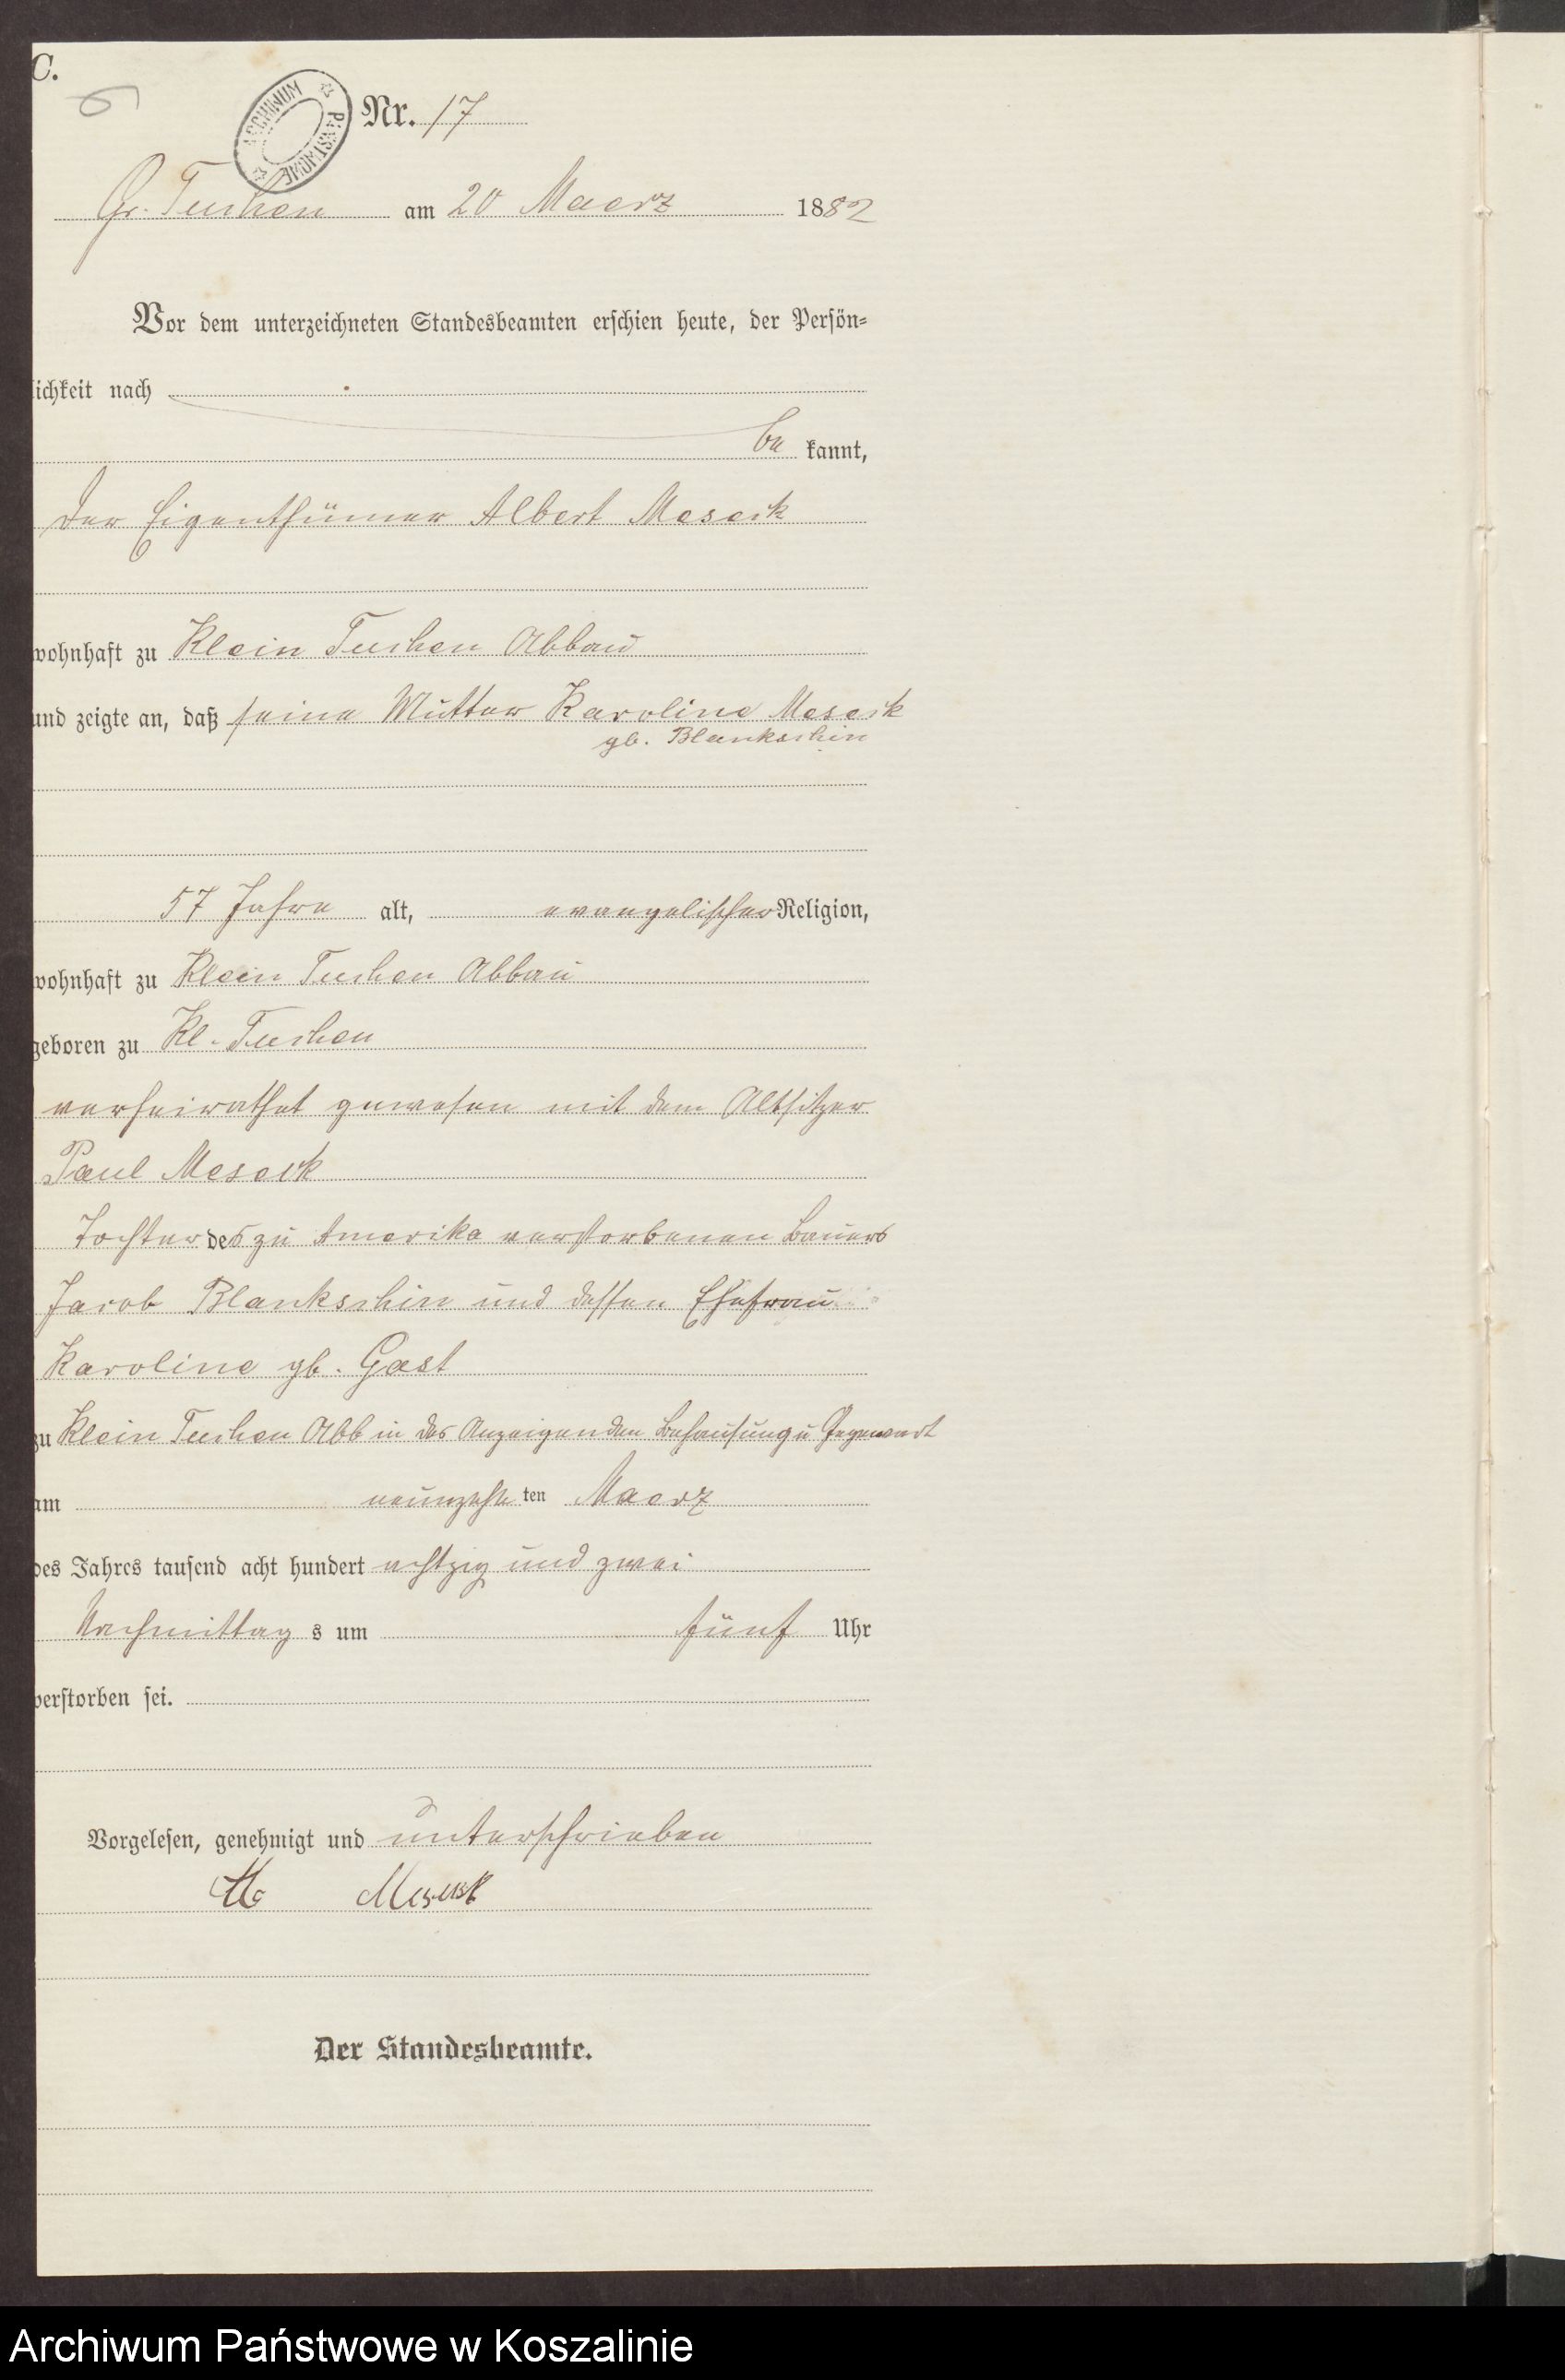 C.
6
ARCHIWUM PAŃSTWOWE
Nr. 17
Gr. Tuchen am 20 Maerz 1882
Vor dem unterzeichneten Standesbeamten erschien heute, der Persön-
lichkeit nach
be kannt,
der Eigenthümer Albert Meseck
wohnhaft zu Klein Tuchen Abbau
und zeigte an, daß seine Mutter Karoline Meseck
gb. Blankschin
57 Jahre alt, evangelischer Religion,
wohnhaft zu Klein Tuchen Abbau
geboren zu Kl. Tuchen
verheirathet gewesen mit dem Altsitzer
Paul Meseck
Tochter des zu Amerika verstorbenen Bauers
Jacob Blankschin und dessen Ehefrau
Karoline gb. Gast
zu Klein Tuchen Abb in des Anzeigenden Behausung u Gegenwart
am neunzehn ten Maerz
des Jahres tausend acht hundert achtzig und zwei
Nachmittag s um fünf Uhr
verstorben sei.
Vorgelesen, genehmigt und unterschrieben
Meseck
Der Standesbeamte.
Archiwum Państwowe w Koszalinie